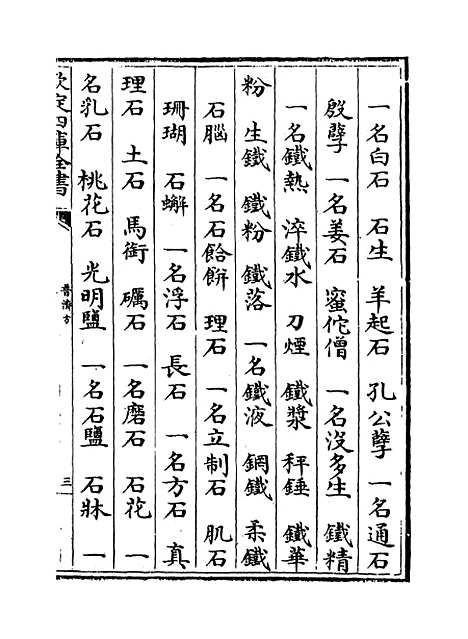 一名白石 石生 羊起石 孔公孽 一名通石
殷孽 一名姜石 蜜佗僧 一名沒多生 鐵精
一名鐵熱 淬鐵水 刀煙 鐵漿 秤錘 鐵華
粉 生鐵 鐵粉 鐵落 一名鐵液 鋼鐵 柔鐵
石腦 一名石飴餅 理石 一名立制石 肌石
珊瑚 石蠏 一名浮石 長石 一名方石 真
理石 土石 馬銜 礪石 一名磨石 石花 一
名乳石 桃花石 光明鹽 一名石鹽 石牀 一
欽定四庫全書
普濟方
三